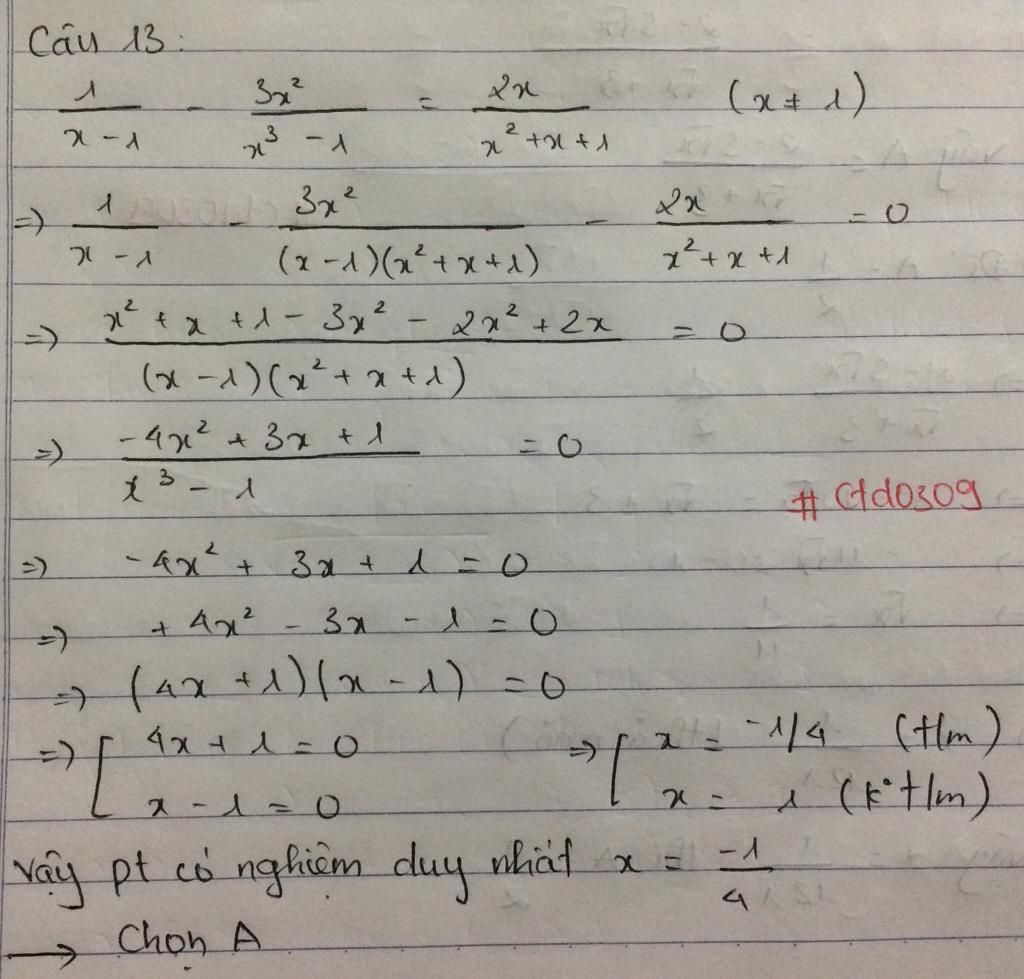 Câu 13:
1/(x - 1) - 3x²/(x³ - 1) = 2x/(x² + x + 1) (x ≠ 1)
=> 1/(x - 1) - 3x²/((x - 1)(x² + x + 1)) - 2x/(x² + x + 1) = 0
=> (x² + x + 1 - 3x² - 2x² + 2x)/((x - 1)(x² + x + 1)) = 0
=> (-4x² + 3x + 1)/(x³ - 1) = 0
# Ctd0309
=> -4x² + 3x + 1 = 0
=> + 4x² - 3x - 1 = 0
=> (4x + 1)(x - 1) = 0
=> [ 4x + 1 = 0 => [ x = -1/4 (t/m)
x - 1 = 0 x = 1 (k° t/m)
Vậy pt có nghiệm duy nhất x = -1/4
→ Chọn A